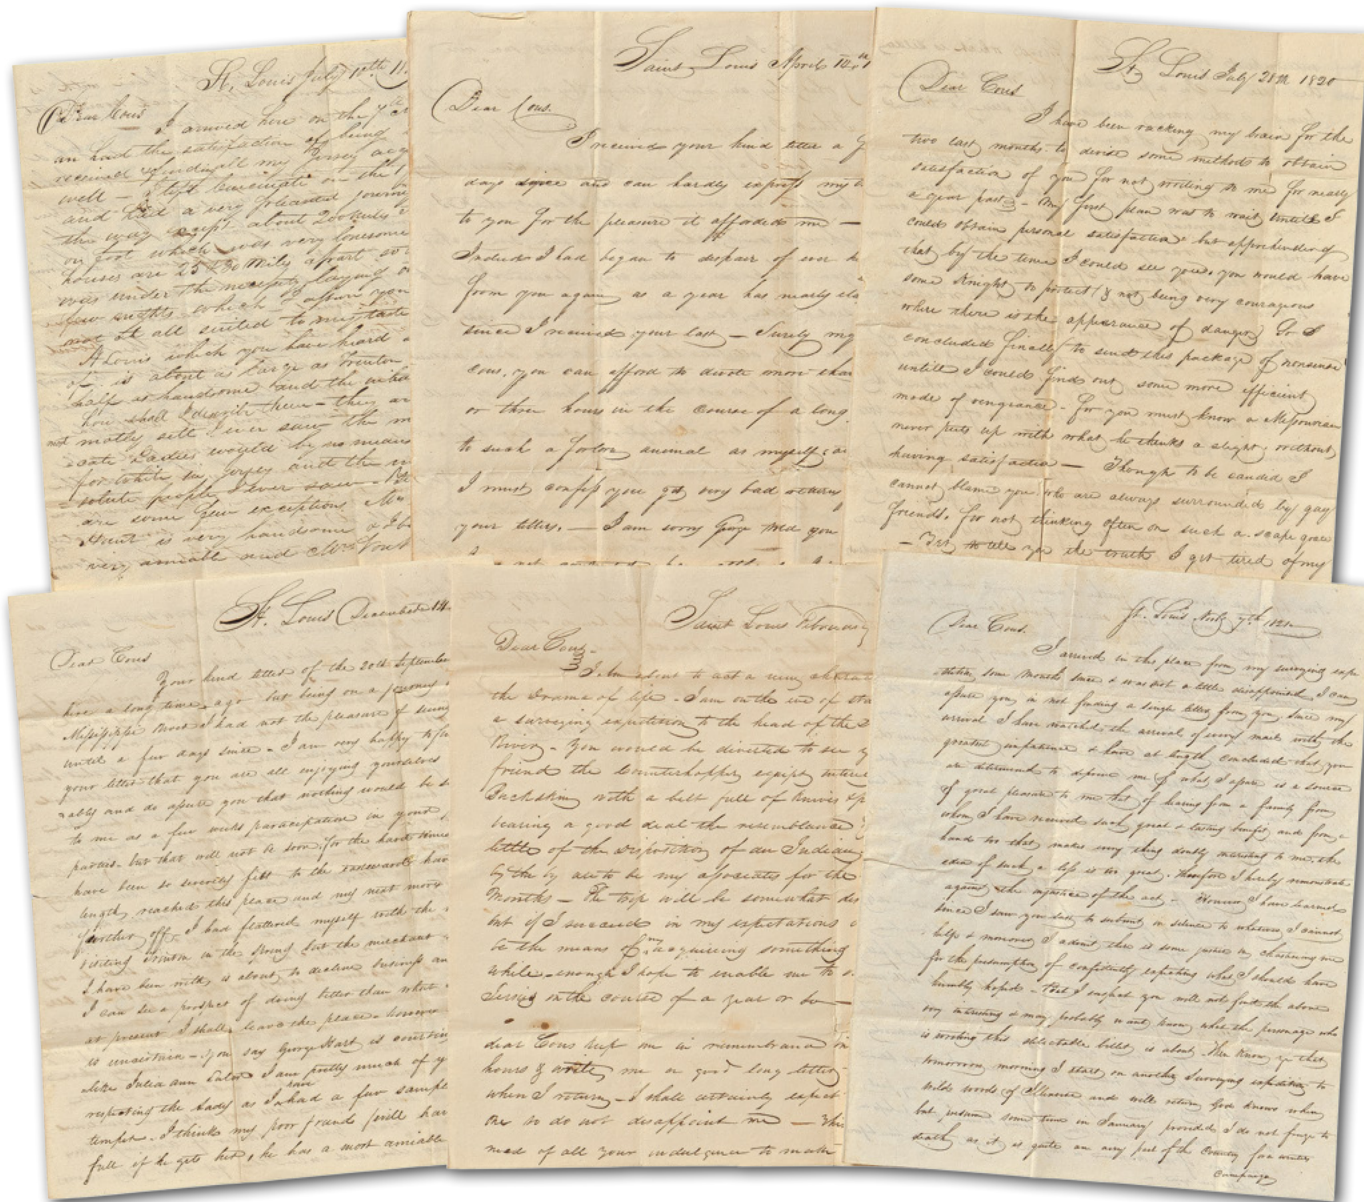 St. Louis July 10th
Dear Cous
I arrived here on the 7th
an had the satisfaction of being
received & finding all my Jersey acq
well - I left Cincinnati on the
and had a very pleasant journey
the way except about 200 miles
on foot which was very lonesome
houses are 25 & 30 Miles apart so
was under the necessity laying o
few nights which I assure you
not at all suited to my taste
St Louis which you have heard
of, is about as large as Trenton
half as handsome and the inha
how shall I describe them - they ar
most motley sett I ever saw - the m
cate Ladies would by no means
for white, by gypes and the
solute people I ever saw
are some few exceptions
Hunt is very handsome & I b
very amiable and
Saint Louis April 10th
Dear Cous.
I received your kind letter a f
days since and can hardly express my
to you for the pleasure it afforded me —
Indeed I had began to despair of ever h
from you again as a year has nearly ela
since I received your last — Surely my
cous, you can afford to devote more than
or three hours in the course of a long
to such a forlorn animal as myself; a
I must confess you get very bad returns
your letters. — I am sorry George told you
St. Louis July 20th 1820
Dear Cous
I have been racking my brain for the
two last months to devise some methods to obtain
satisfaction of you for not writing to me for nearly
a year past - My first plan was to wait untill I
could obtain personal satisfaction but apprehensive of
that by the time I could see you, you would have
some Knight to protect & not being very couragous
where there is the appearance of danger, So I
concluded finally to send this package of nonsense
untill I could find out some more efficient
mode of vengeance - for you must know a Missourian
never puts up with what he thinks a slight without
having satisfaction — Though to be candid I
cannot blame you who are always surrounded by gay
friends, for not thinking often on such a scape grace
- Yet to tell you the truth I get tired of my
St. Louis December 14
Dear Cous
Your kind letter of the 20th September
here a long time ago but being on a journey
Mississippi River I had not the pleasure of seeing
until a few days since - I am very happy to fi
your letter that you are all enjoying yourselves
ably and do assure you that nothing would be
to me as a few weeks participation in your
parties - but that will not be soon for the hard times
have been so severely felt to the eastward hav
length reached this place and my next move
further off. I had flattered myself with the
visiting Trenton in the Spring but the merchant
I have been with, is about to decline business an
I can see a prospect of doing better than what
at present I shall leave the place - however
is uncertain - you say George Hart is courtin
Julia Ann I am pretty much of y
respecting the Lady as I have had a few sample
temper - I think my poor friend will hav
full if he gets her, he has a most amiable
Saint Louis February
Dear Cous -
I Am about to act a new character
the Drama of life - I am on the eve of sta
a surveying expedition to the head of the
River - You would be diverted to see y
friend the Counterhopper equipt
Buckskin with a belt full of knives & p
bearing a good deal the resemblance
little of the disposition of an Indian
by the by are to be my associates for the
Months - The trip will be somewhat
but if I succeed in my expectations
be the means of my acquiring something
while - enough I hope to enable me to
Jersey in the course of a year or so —
dear Cous keep me in remembrance in
hours & write me a good long letter
when I return - I shall certainly expect
one so do not disappoint me —
need of all your indulgence to make
St. Louis 7th 182
Dear Cous.
I arrived in this place from my surveying expe
dition some Months since & was not a little disappointed I can
assure you in not finding a single letter from you, Since my
arrival I have watched the arrival of every mail with the
greatest impatience & have at length concluded that you
are determined to deprive me of what I assure is a source
of great pleasure to me that of hearing from a family from
whom I have received such great & lasting benefit and from a
hand too that makes every thing doubly interesting to me, the
idea of such a loss is too great. Therefore I hereby remonstrate
against the injustice of the act - However I have learned
since I saw you last to submit in silence to whatever I cannot
help & moreover I admit there is some justice in chastening me
for the presumption of confidently expecting what I should have
humbly hoped - But I suspect you will not find the above
very interesting & may probably want know what the personage who
is writing this delectable billet is about - Then know ye that
tomorrow morning I start on another Surveying expedition to
wilds woods of Illinois and will return God knows when
but presume some time in January provided I do not freeze to
death, as it is quite an airy part of the Country for a winter
Campaign